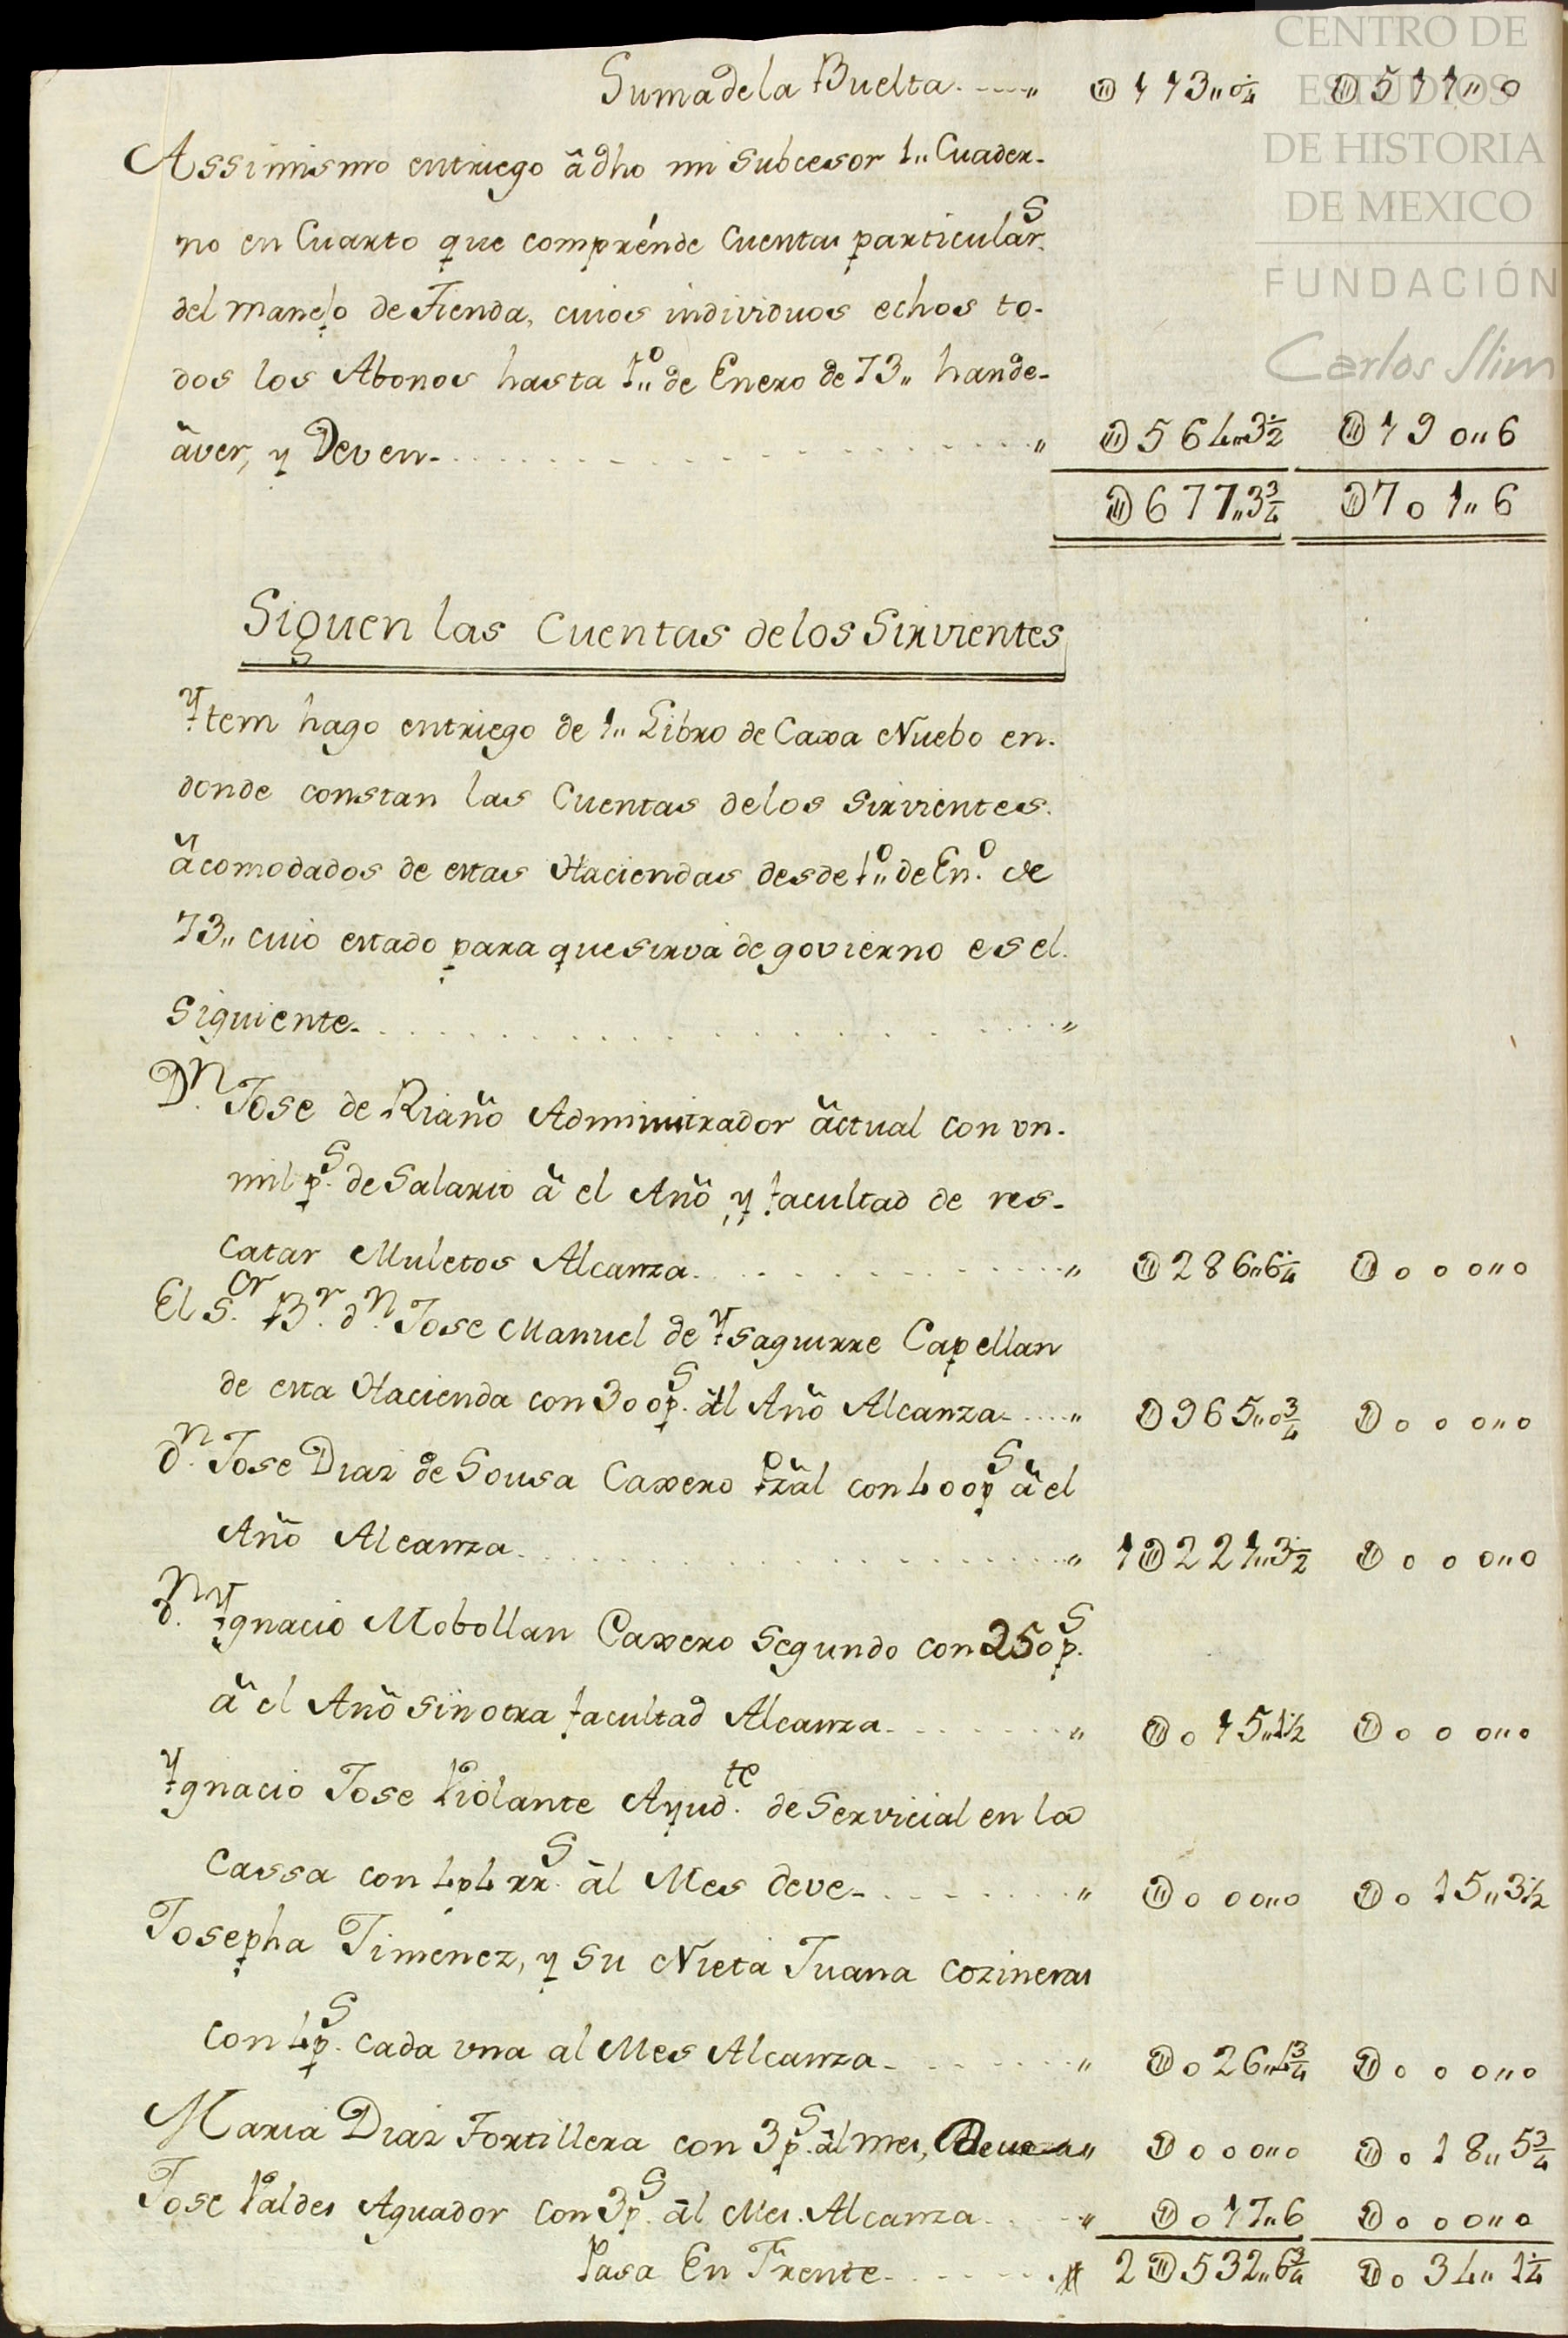 CENTRO DE
ESTUDIOS
DE HISTORIA
DE MEXICO
FUNDACIÓN
Carlos Slim
Suma de la Buelta. ---- „ U 113„0¼ U 511„0
Assimismo entriego â dho mi subcesor 1„ Cuader-
no en Cuarto que comprénde Cuentas particular.s
del manejo de Tienda, cuios individuos echos to-
dos los Abonos hasta 1„o de Enero de 73„ hande-
âver, y Deven- „ U 564„3½ U 190„6
U 677„3¾ U 701„6
Siguen las Cuentas de los Sirvientes
Ytem hago entriego de 1„ Libro de Caxa Nuebo en-
donde constan las Cuentas de los Sirvientes.
âcomodados de estas Haciendas desde 1„o de En.o de
73„ cuio estado para que sirva de govierno es el.
Siguiente- „
D.n Jose de Riaño Administrador âctual con un-
mil p.s de Salario â el Año, y facultad de res-
catar Muletos Alcanza. „ U 286„6¼ U 000„0
El S.or B.r d.n Jose Manuel de Ysaguirre Capellan
de esta Hacienda con 300p.s âl Año Alcanza- „ U 965„0¾ U 000„0
d.n Jose Diaz de Sousa Caxero Gral con 400p.s â el
Año Alcanza. „ 1U 221„3½ U 000„0
d.n Ygnacio Mobollan Caxero Segundo con 250p.s
â el Año sin otra facultad Alcanza- „ U 015„1½ U 000„0
Ygnacio Jose Violante Ayud.te de Servicial en la
Cassa con 4p4 rr.s âl Mes deve- „ U 000„0 U 015„3½
Josepha Jimenez, y su Nieta Juana Cozineras
con 4p.s cada una al Mes Alcanza- „ U 026„1¾ U 000„0
Maria Diaz Tortillera con 3p.s âl mes, Deve „ U 000„0 U 018„5¾
Jose Valdes Aguador con 3p.s âl Mes. Alcanza. „ U 017„6 U 000„0
Pasa En Frente- 2U 532„6¾ U 034„1¼